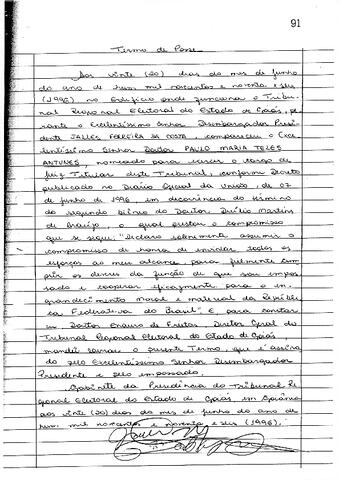 91
Termo de Posse
Aos vinte (20) dias do mes de junho
do ano de hum mil novecentos e noventa e seis
(1996) no Edifício onde funciona o Tribu-
nal Regional Eleitoral do Estado de Goiás, pe-
rante o Excelentíssimo Senhor Desembargador Presi-
dente JALLES FERREIRA DA COSTA, compareceu o Exce-
lentíssimo Senhor Doutor PAULO MARIA TELES
ANTUNES, nomeado para exercer o cargo de
Juiz Titular deste Tribunal, conforme Decreto
publicado no Diário Oficial da União, de 07
de junho de 1996, em decorrência do término
do segundo biênio do Doutor Martins
de Araújo, o qual prestou o compromisso
que se segue: "Declaro solenemente assumir o
compromisso de honra de envidar todos os
esforços ao meu alcance, para fielmente cum-
prir os deveres da função de que sou empos-
sado e cooperar eficazmente para o en-
grandecimento moral e material da Repúbli-
ca Federativa do Brasil". E para constar
eu Doutor de Freitas, Diretor Geral do
Tribunal Regional Eleitoral do Estado de Goiás
mandei lavrar o presente Termo, que é assina-
do pelo Excelentíssimo Senhor Desembargador
Presidente e pelo empossado.
Gabinete da Presidência do Tribunal Re-
gional Eleitoral do Estado de Goiás em Goiânia
aos vinte (20) dias do mes de junho do ano de
hum mil novecentos e noventa e seis (1996).